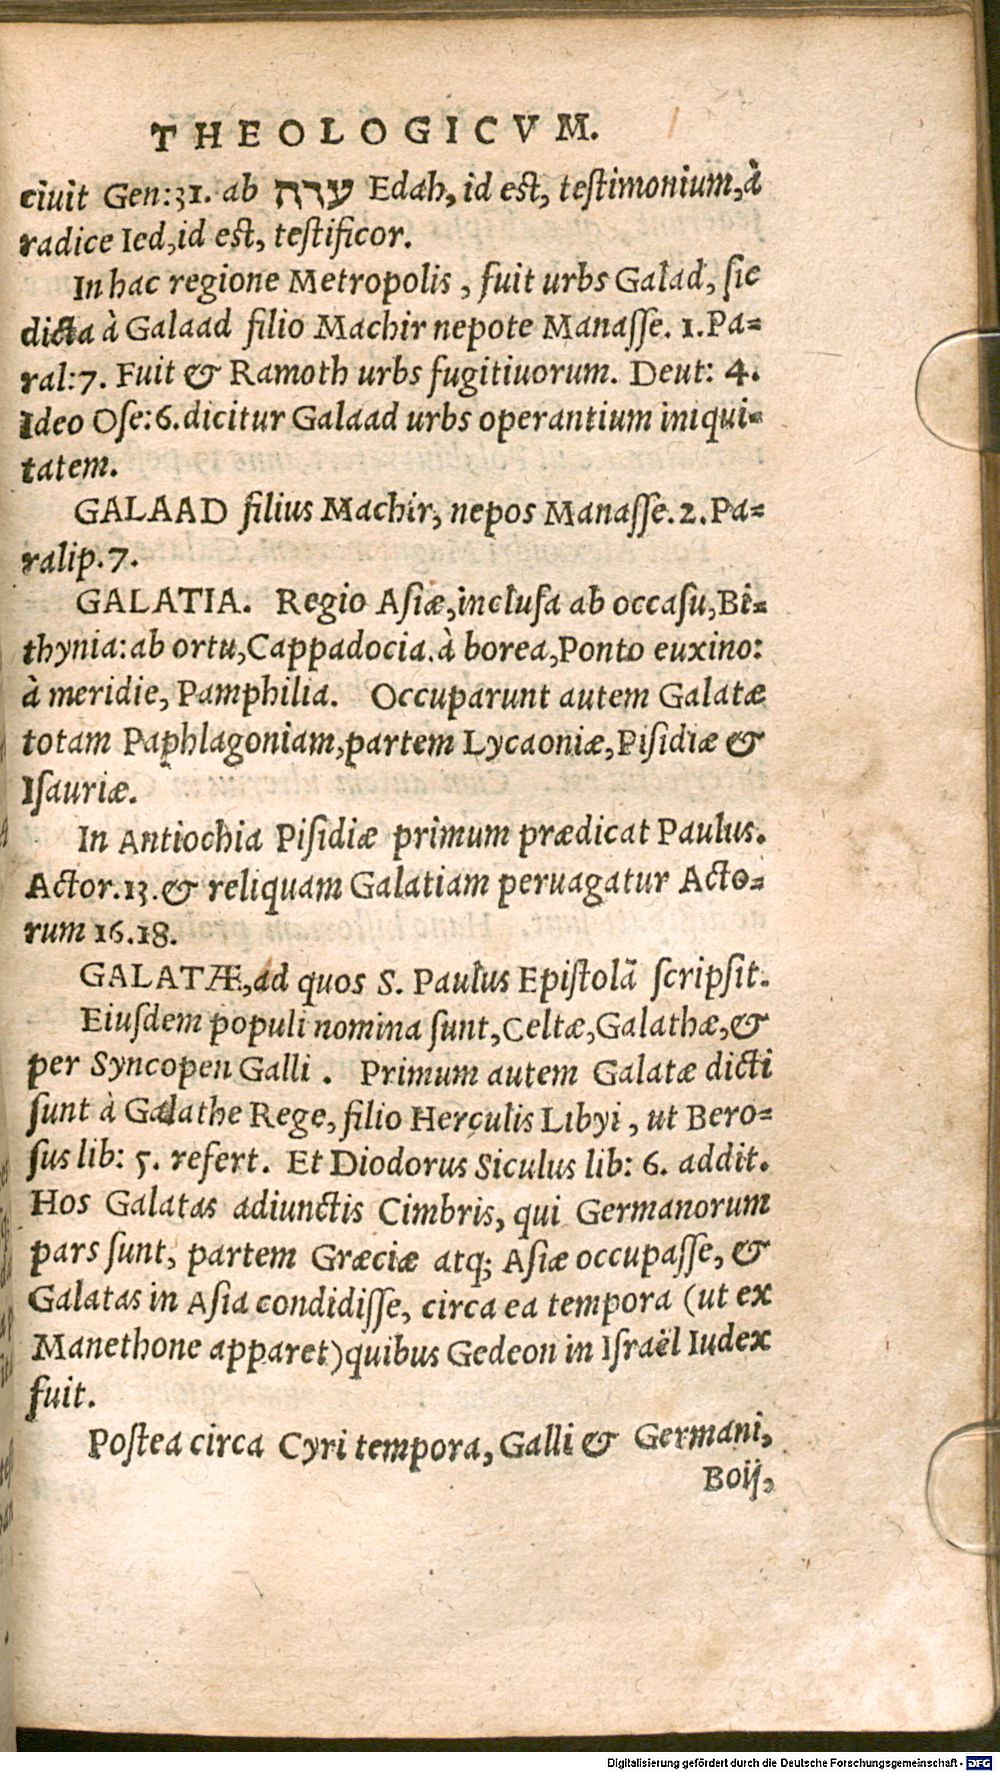 THEOLOGICVM.
ciuit Gen:31. ab עדה Edah, id est, testimonium, à
radice Ied, id est, testificor.
In hac regione Metropolis, fuit urbs Galad, sic
dicta à Galaad filio Machir nepote Manasse. 1. Pa=
ral: 7. Fuit & Ramoth urbs fugitiuorum. Deut: 4.
Ideo Ose: 6. dicitur Galaad urbs operantium iniqui=
tatem.
GALAAD filius Machir, nepos Manasse. 2. Pa=
ralip. 7.
GALATIA. Regio Asiæ, inclusa ab occasu, Bi=
thynia: ab ortu, Cappadocia. à borea, Ponto euxino:
à meridie, Pamphilia. Occuparunt autem Galatæ
totam Paphlagoniam, partem Lycaoniæ, Pisidiæ &
Isauriæ.
In Antiochia Pisidiæ primum prædicat Paulus.
Actor. 13. & reliquam Galatiam peruagatur Acto=
rum 16.18.
GALATÆ, ad quos S. Paulus Epistolã scripsit.
Eiusdem populi nomina sunt, Celtæ, Galathæ, &
per Syncopen Galli. Primum autem Galatæ dicti
sunt à Galathe Rege, filio Herculis Libyi, ut Bero=
sus lib: 5. refert. Et Diodorus Siculus lib: 6. addit.
Hos Galatas adiunctis Cimbris, qui Germanorum
pars sunt, partem Græciæ atq; Asiæ occupasse, &
Galatas in Asia condidisse, circa ea tempora (ut ex
Manethone apparet) quibus Gedeon in Israël Iudex
fuit.
Postea circa Cyri tempora, Galli & Germani,
Boij,
Digitalisierung gefördert durch die Deutsche Forschungsgemeinschaft - DFG